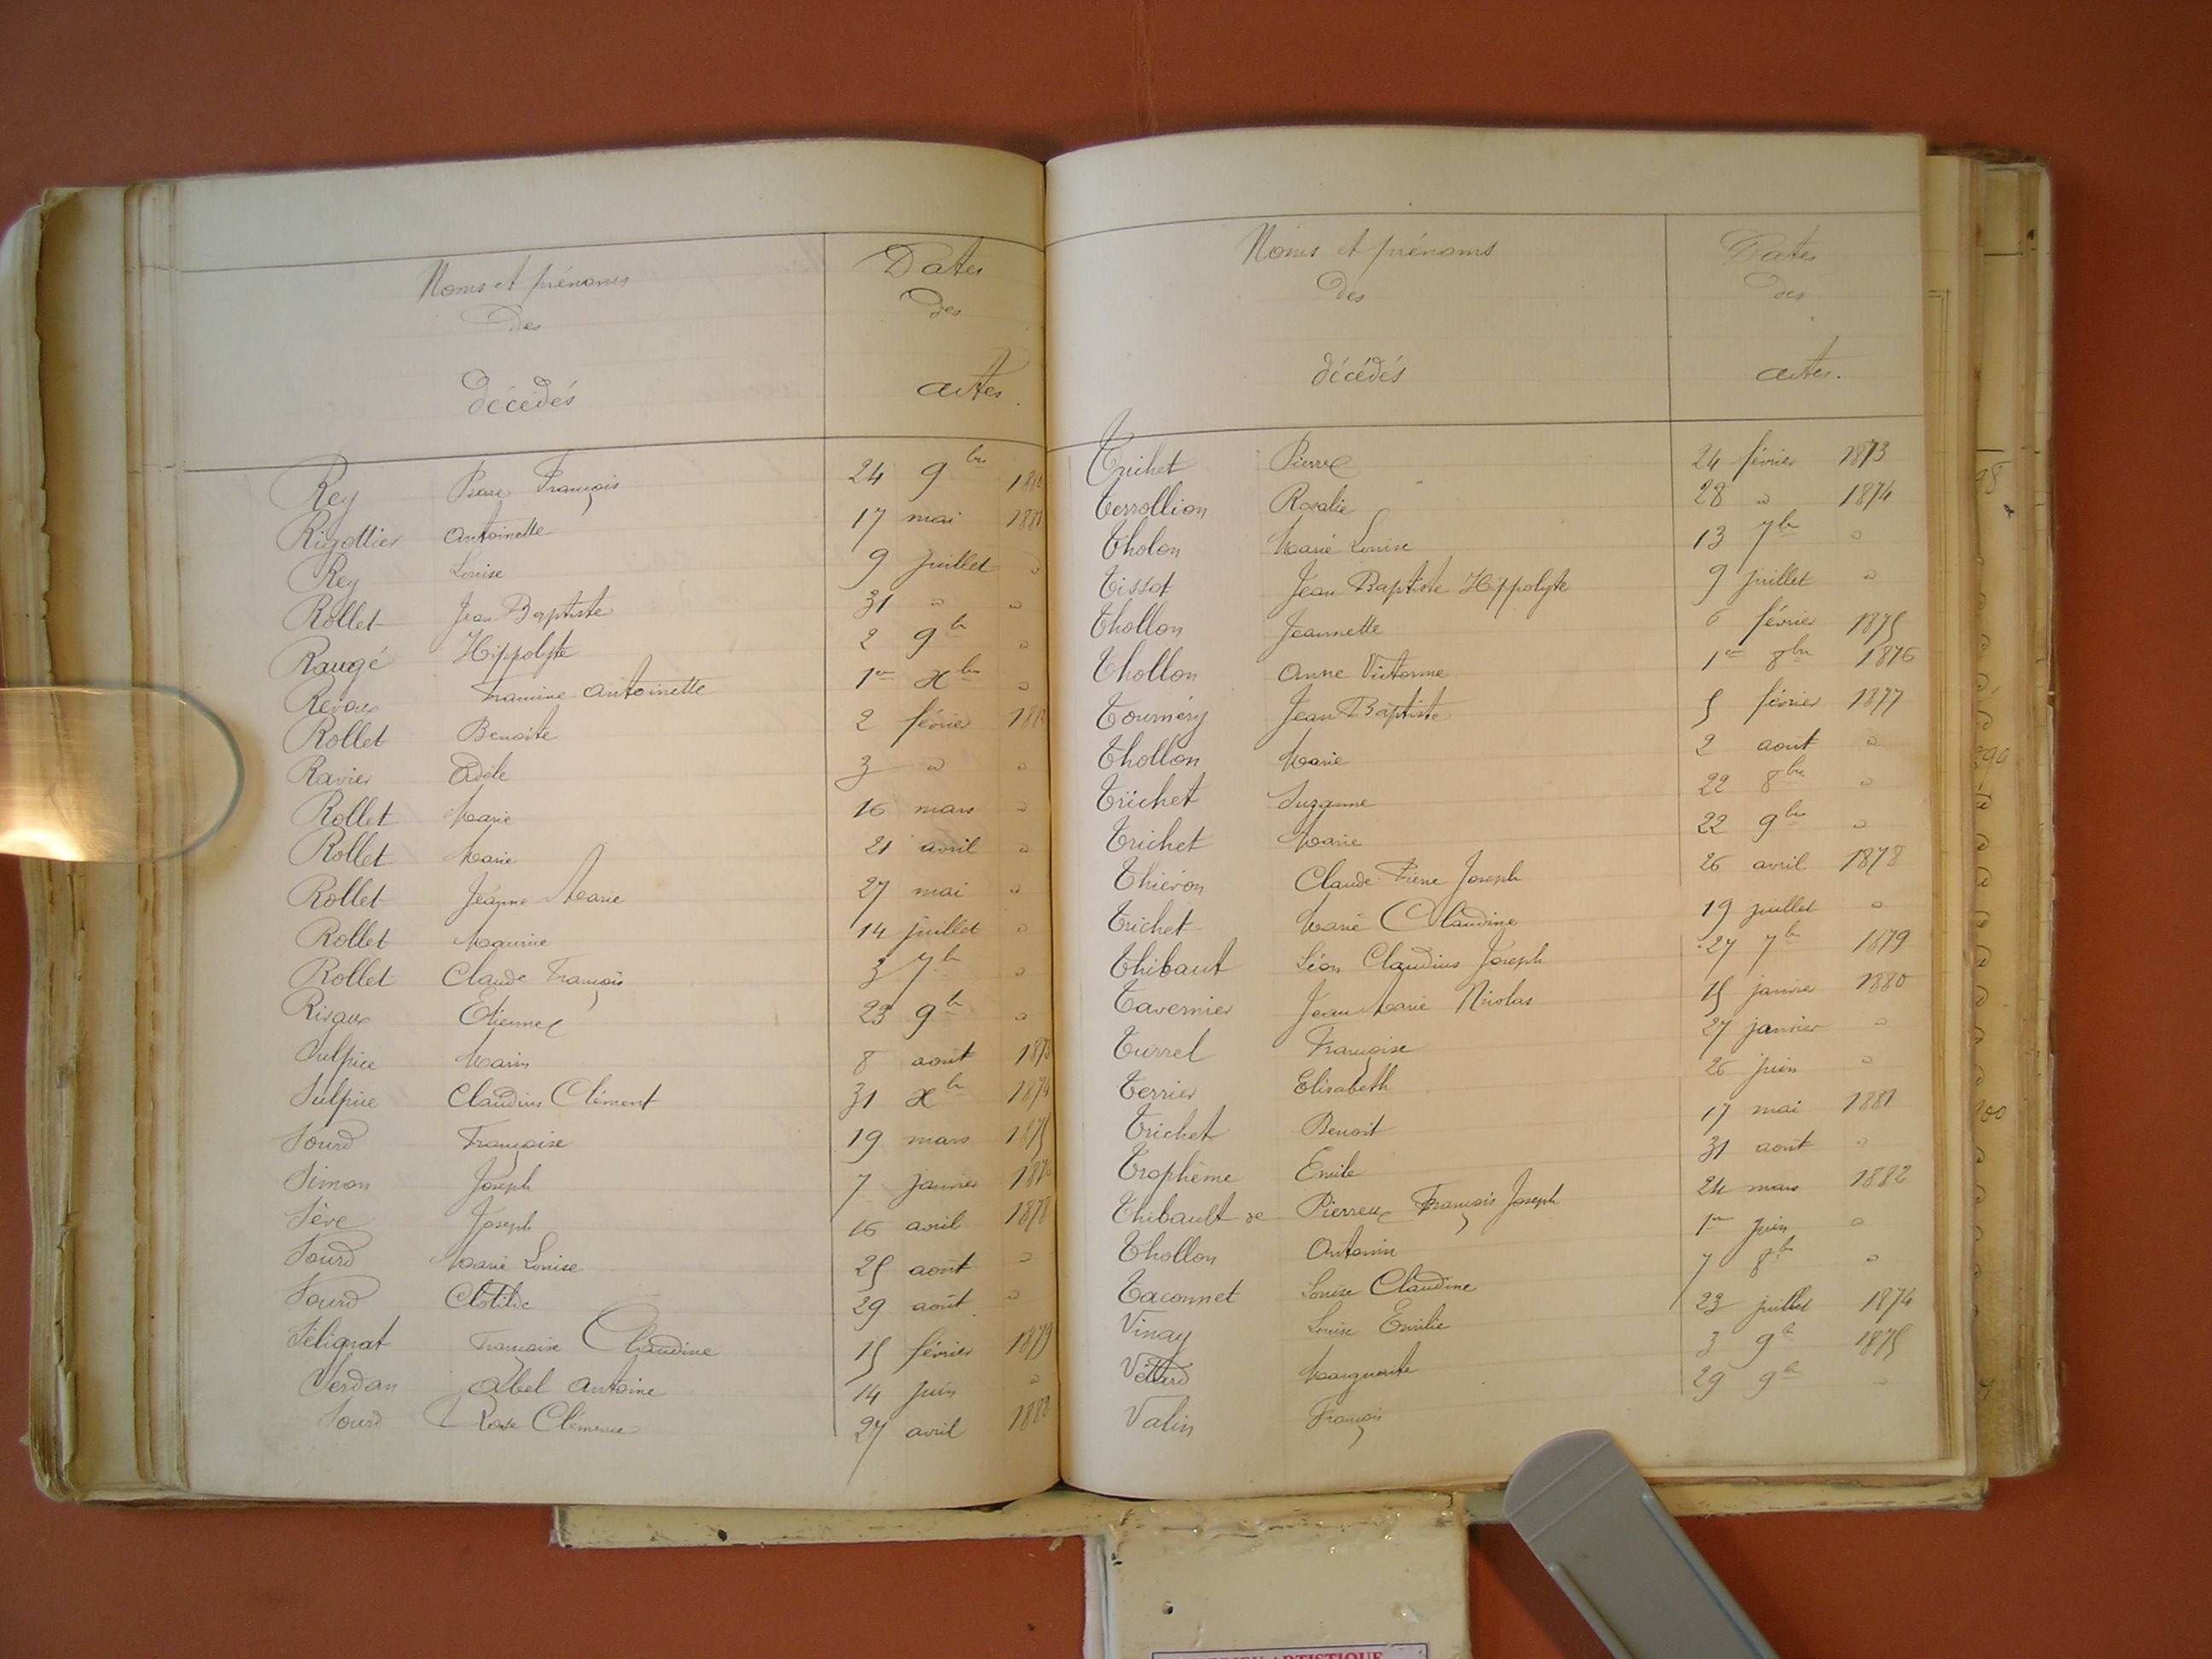 Noms et prénoms
des
décédés
Dates
des
actes.
Rey Pierre François 24 9bre
Rigottier Antoinette 17 mai 1881
Rey Louise 9 juillet "
Rollet Jean Baptiste 31 " "
Raugé Hippolyte 2 9bre "
Francine Antoinette 1er Xbre "
Rollet Benoite 2 février
Ravier Adèle 3 " "
Rollet Marie 16 mars "
Rollet Marie 21 avril "
Rollet Jeanne Marie 27 mai "
Rollet Maurice 14 juillet "
Rollet Claude François 3 7bre "
Etienne 23 9bre "
Sulpice Marin 8 aout
Sulpice Claudius Clément 31 Xbre 1874
Sourd Françoise 19 mars 1875
Simon Joseph 7 janvier
Sève Joseph 16 avril 1878
Sourd Marie Louise 25 aout "
Sourd Clotilde 29 août "
Sélignat Françoise Claudine 15 février 1879
Serdan Abel Antoine 14 juin "
Sourd Rose Clémence 27 avril
Noms et prénoms
des
décédés
Dates
des
actes.
Trichet Pierre 24 février 1873
Terrollion Rosalie 28 " 1874
Tholon Marie Louise 13 7bre "
Tissot Jean Baptiste Hippolyte 9 juillet "
Thollon Jeannette 6 février 1875
Thollon Anne Victorine 1er 8bre 1876
Tournéry Jean Baptiste 5 février 1877
Thollon Marie 2 aout "
Trichet Suzanne 22 8bre "
Trichet Marie 22 9bre "
Thiéron Claude Pierre Joseph 26 avril 1878
Trichet Marie Claudine 19 juillet "
Thibaut Léon Claudius Joseph 27 7bre 1879
Tavernier Jean Marie Nicolas 15 janvier 1880
Turrel Françoise 27 janvier "
Terrier Elisabeth 26 juin "
Trichet Benoit 17 mai 1881
Trophème Emile 31 août "
Thibault de Pierreux François Joseph 24 mars 1882
Thollon Antonin 1er juin "
Taconnet Louise Claudine 7 8bre "
Vinay Louise Emilie 23 juillet 1874
Vittard Marguerite 3 9bre 1875
Valin François 29 9bre "